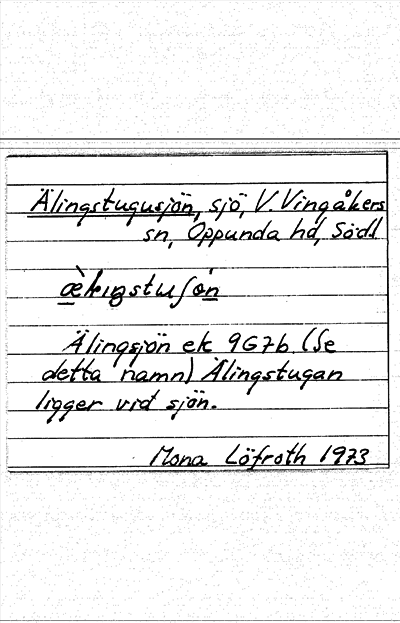 Älingstugusjön, sjö, V. Vingåkers
sn, Oppunda hd, Södl
Älingsjön ek 9G7b (Se
detta namn) Älingstugan
ligger vid sjön.
Mona Löfroth 1973